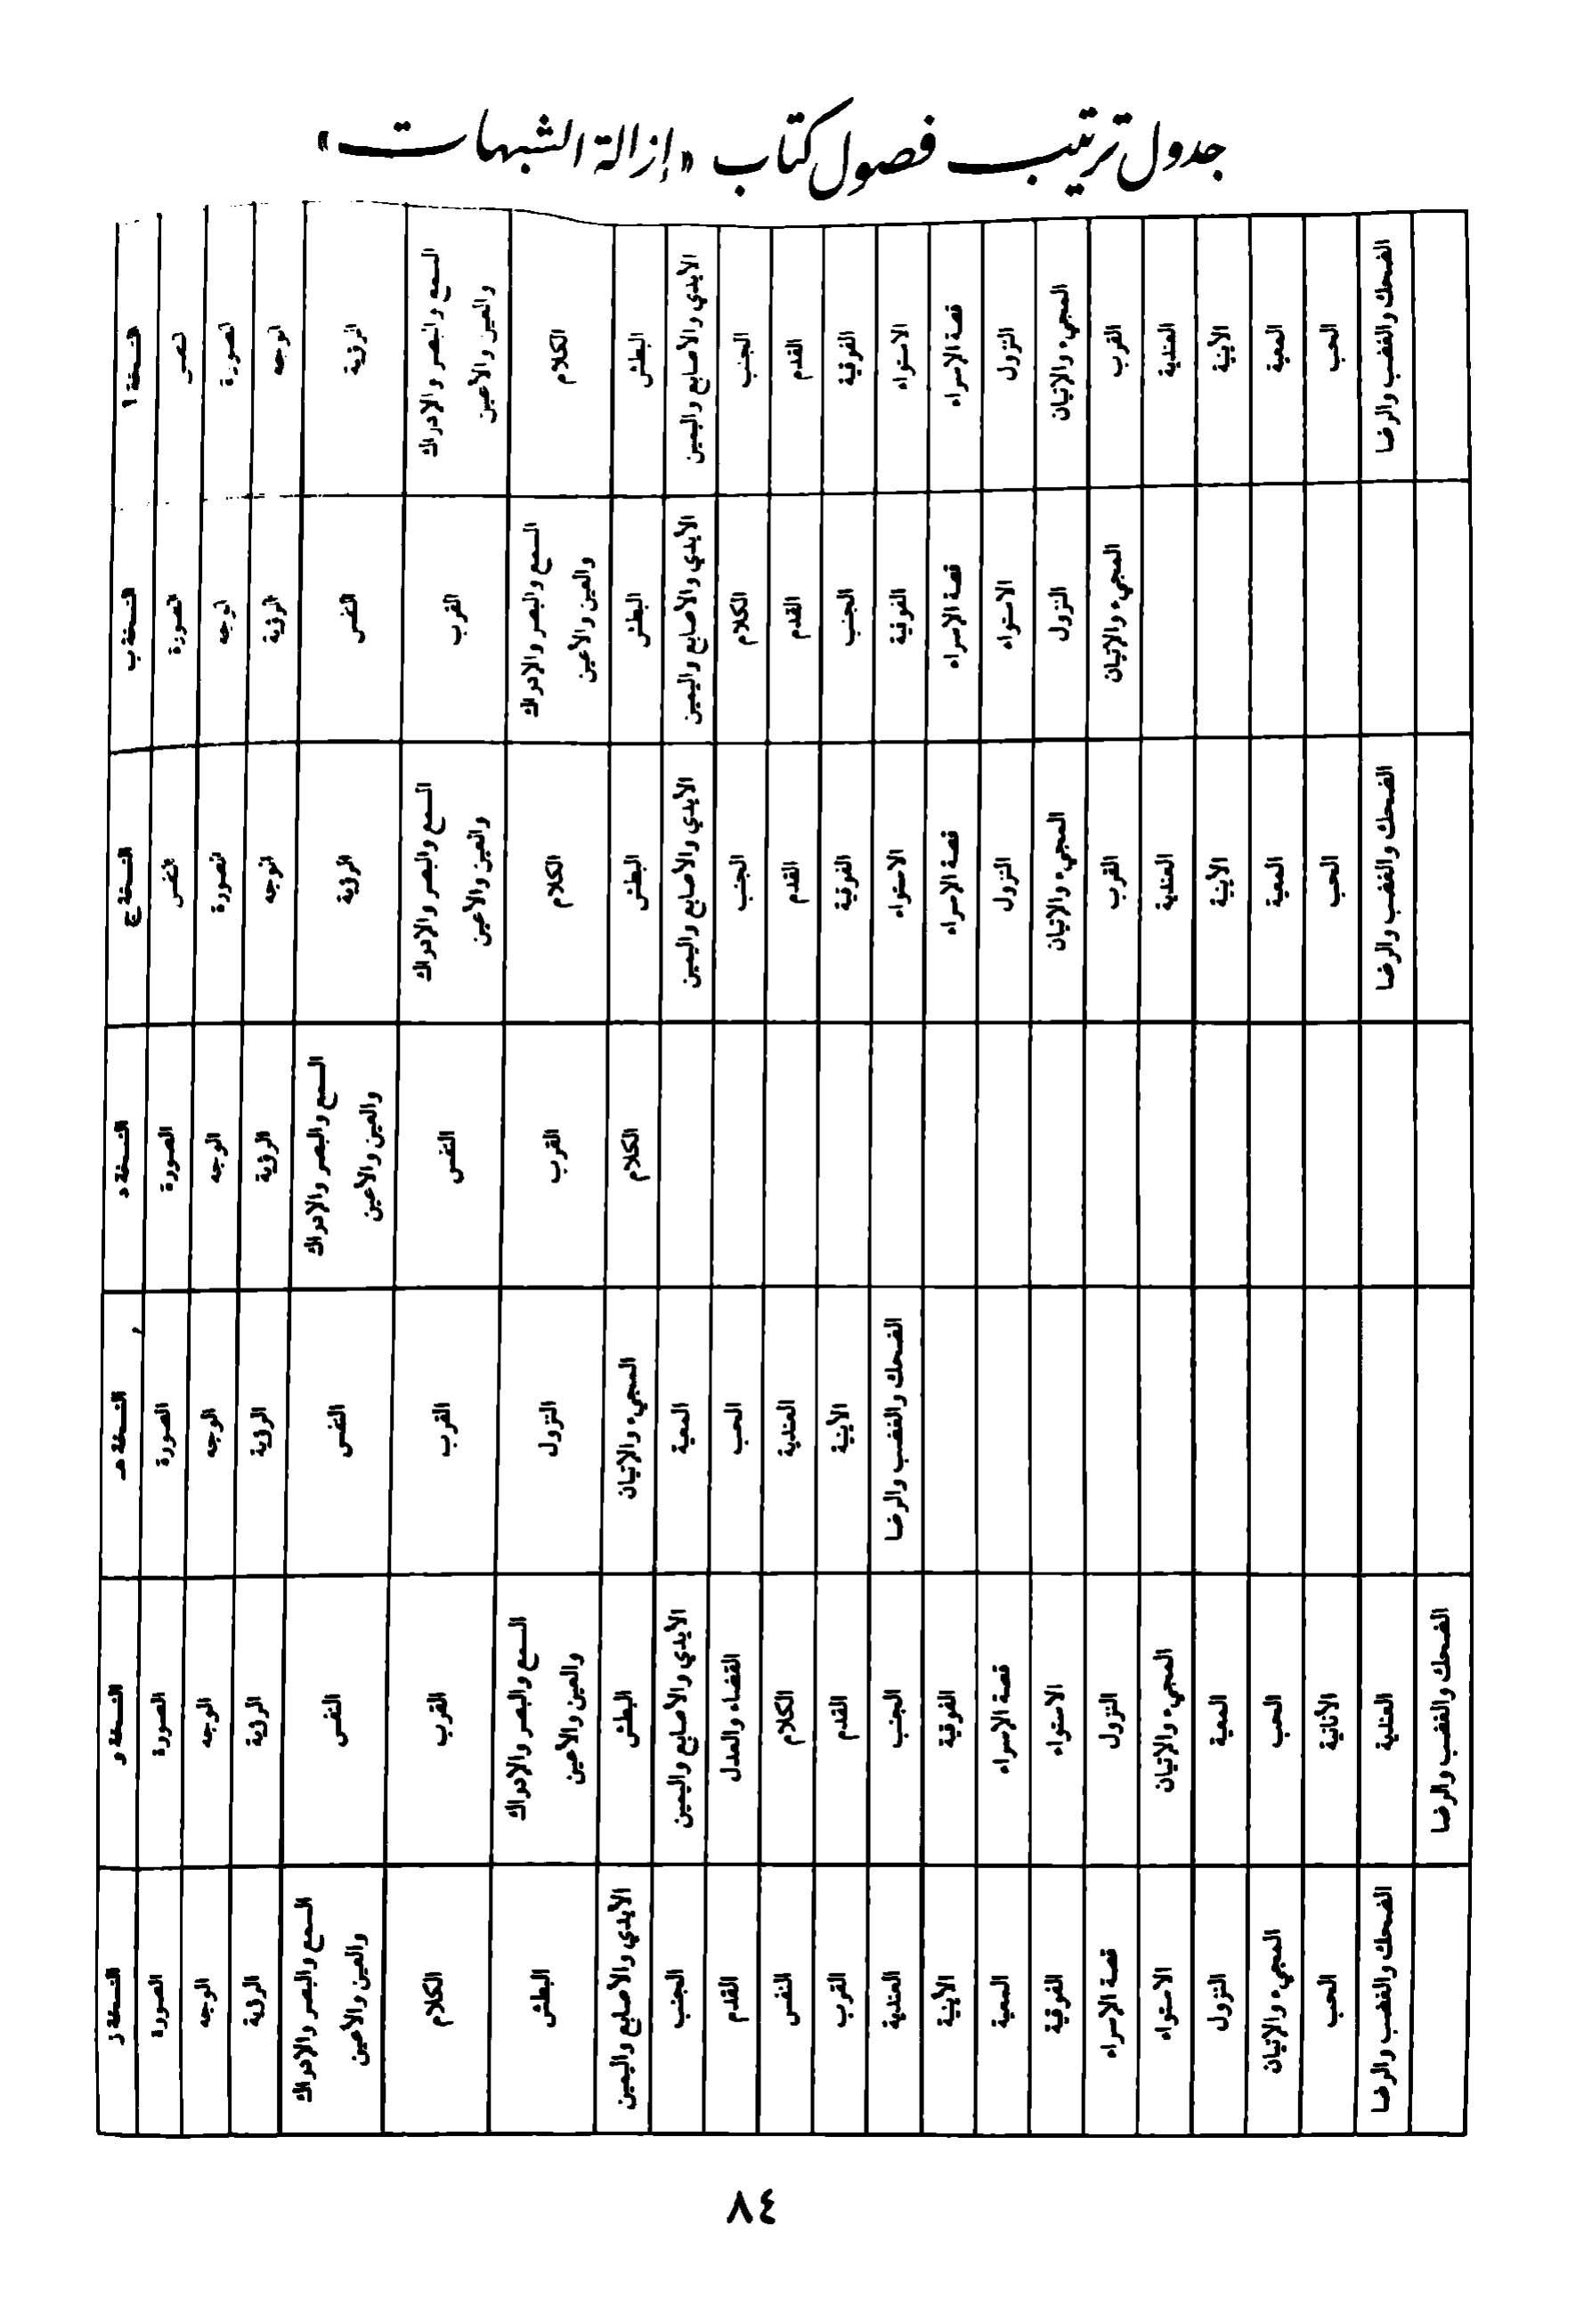 جدول ترتيب فصول كتاب «إزالة الشبهات»
النسخة ا النسخة ب النسخة ج النسخة د النسخة هـ النسخة و النسخة ز
النفس الصورة النفس الصورة الصورة الصورة الصورة
الصورة الوجه الصورة الوجه الوجه الوجه الوجه
الوجه الرؤية الوجه الرؤية الرؤية الرؤية الرؤية
الرؤية النفس الرؤية السمع والبصر والإدراك والعين والأعين النفس النفس السمع والبصر والإدراك والعين والأعين
السمع والبصر والإدراك والعين والأعين القرب السمع والبصر والإدراك والعين والأعين النفس القرب القرب الكلام
الكلام السمع والبصر والإدراك والعين والأعين الكلام القرب النزول السمع والبصر والإدراك والعين والأعين البطش
البطش البطش البطش الكلام المجيء والإتيان البطش الأيدي والأصابع واليمين
الأيدي والأصابع واليمين الأيدي والأصابع واليمين الأيدي والأصابع واليمين المعية الأيدي والأصابع واليمين الجنب
الجنب الكلام الجنب الحب القضاء والعدل القدم
القدم القدم القدم العندية الكلام النفس
الفوقية الجنب الفوقية الأينية القدم القرب
الاستواء الفوقية الاستواء الضحك والغضب والرضا الجنب العندية
قصة الإسراء قصة الإسراء قصة الإسراء الفوقية الأينية
النزول الاستواء النزول قصة الإسراء المعية
المجيء والإتيان النزول المجيء والإتيان الاستواء الفوقية
القرب المجيء والإتيان القرب النزول قصة الإسراء
العندية العندية المجيء والإتيان الاستواء
الأينية الأينية المعية النزول
المعية المعية الحب المجيء والإتيان
الحب الحب الأنانية الحب
الضحك والغضب والرضا الضحك والغضب والرضا العندية الضحك والغضب والرضا
الضحك والغضب والرضا
٨٤